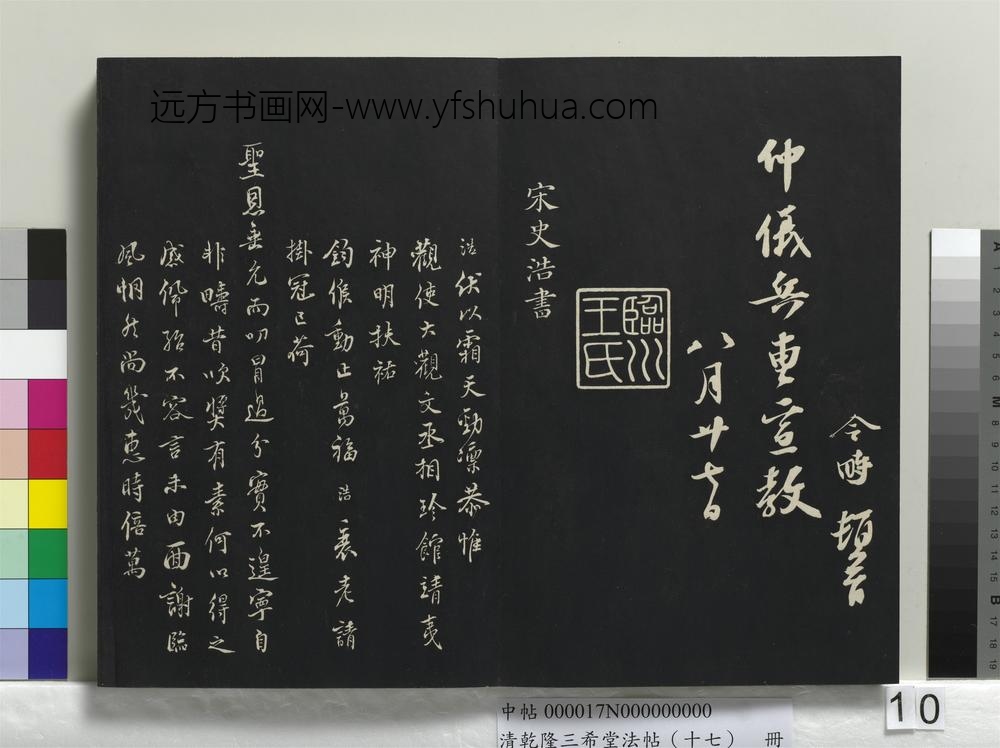 远方书画网-www.yfshuhua.com
令時頓首
仲儀兵曹宣教
八月廿七日
臨川王氏
宋史浩書
浩伏以霜天勁凜恭惟
觀使大觀文丞相珍館靖夷
神明扶祐
鈞候動止萬福浩衰老請
掛冠已荷
聖恩垂允而叨冒過分實不遑寧自
非疇昔吹獎有素何以得之
感佩殆不容言未由面謝臨
風惘然尚幾惠時倍萬
中帖 000017N000000000
清乾隆三希堂法帖（十七） 冊
10